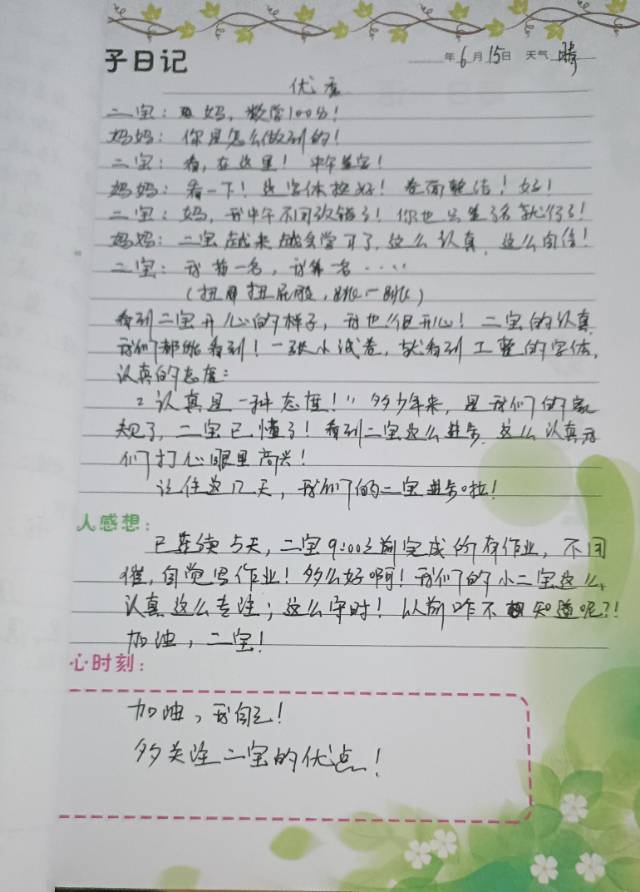 子日记 年6月15日 天气 晴
优点
二宝：妈，数学100分！
妈妈：你是怎么做到的！
二宝：看，在这里！
妈妈：看一下！这字体挺好！卷面整洁！好！
二宝：妈，我中午不用改错了！你也只签了名就行了！
妈妈：二宝越来越会学习了，这么认真，这么自信！
二宝：我第一名，我第一名‥‥
（扭屁扭屁股，
看到二宝开心的样子，我也很开心！二宝的认真
我们都能看到！一张小试卷，就看到工整的字体，
认真的态度：
“认真是一种态度！”多少年来，是我们的家
规了，二宝已懂了！看到二宝这么进步，这么认真我
们打心眼里高兴！
这几天，我们的二宝进步啦！
人感想：
已连续5天，二宝9:00之前完成所有作业，不用
催，自觉写作业！多么好啊！我们的小二宝这么
认真这么专注；这么守时！以前咋不知道呢？！
加油，二宝！
心时刻：
加油，我自己！
多关注二宝的优点！